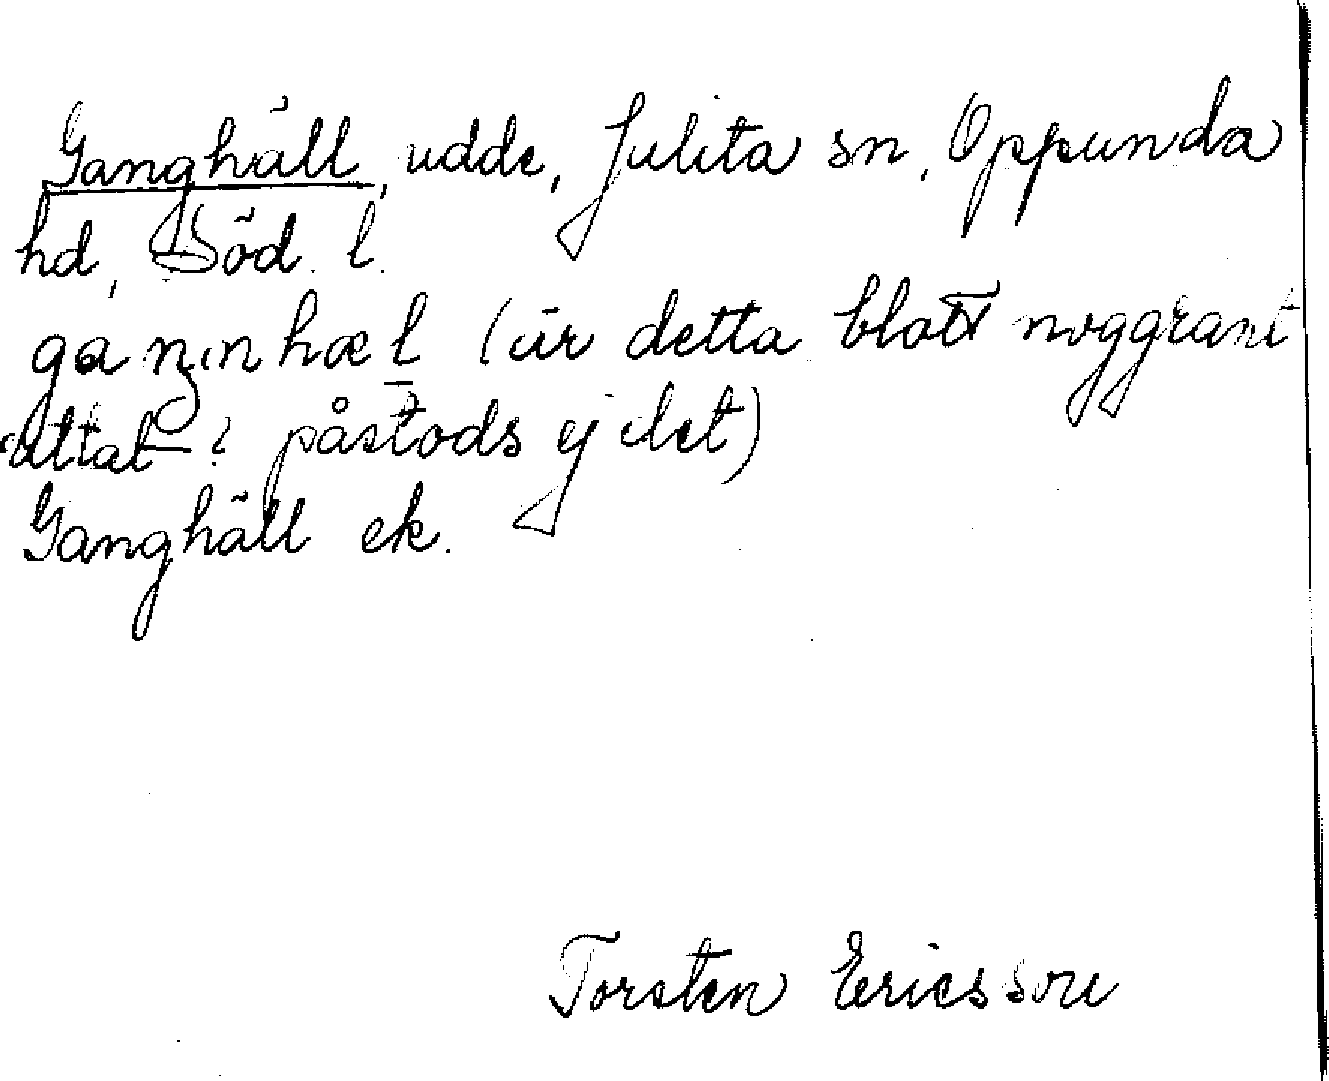 Ganghäll, udde, Julita sn, Oppunda
hd, Söd. l.
(är detta blott noggrant
uttal – ? påstods ej det)
Ganghäll ek.
Torsten Ericsson